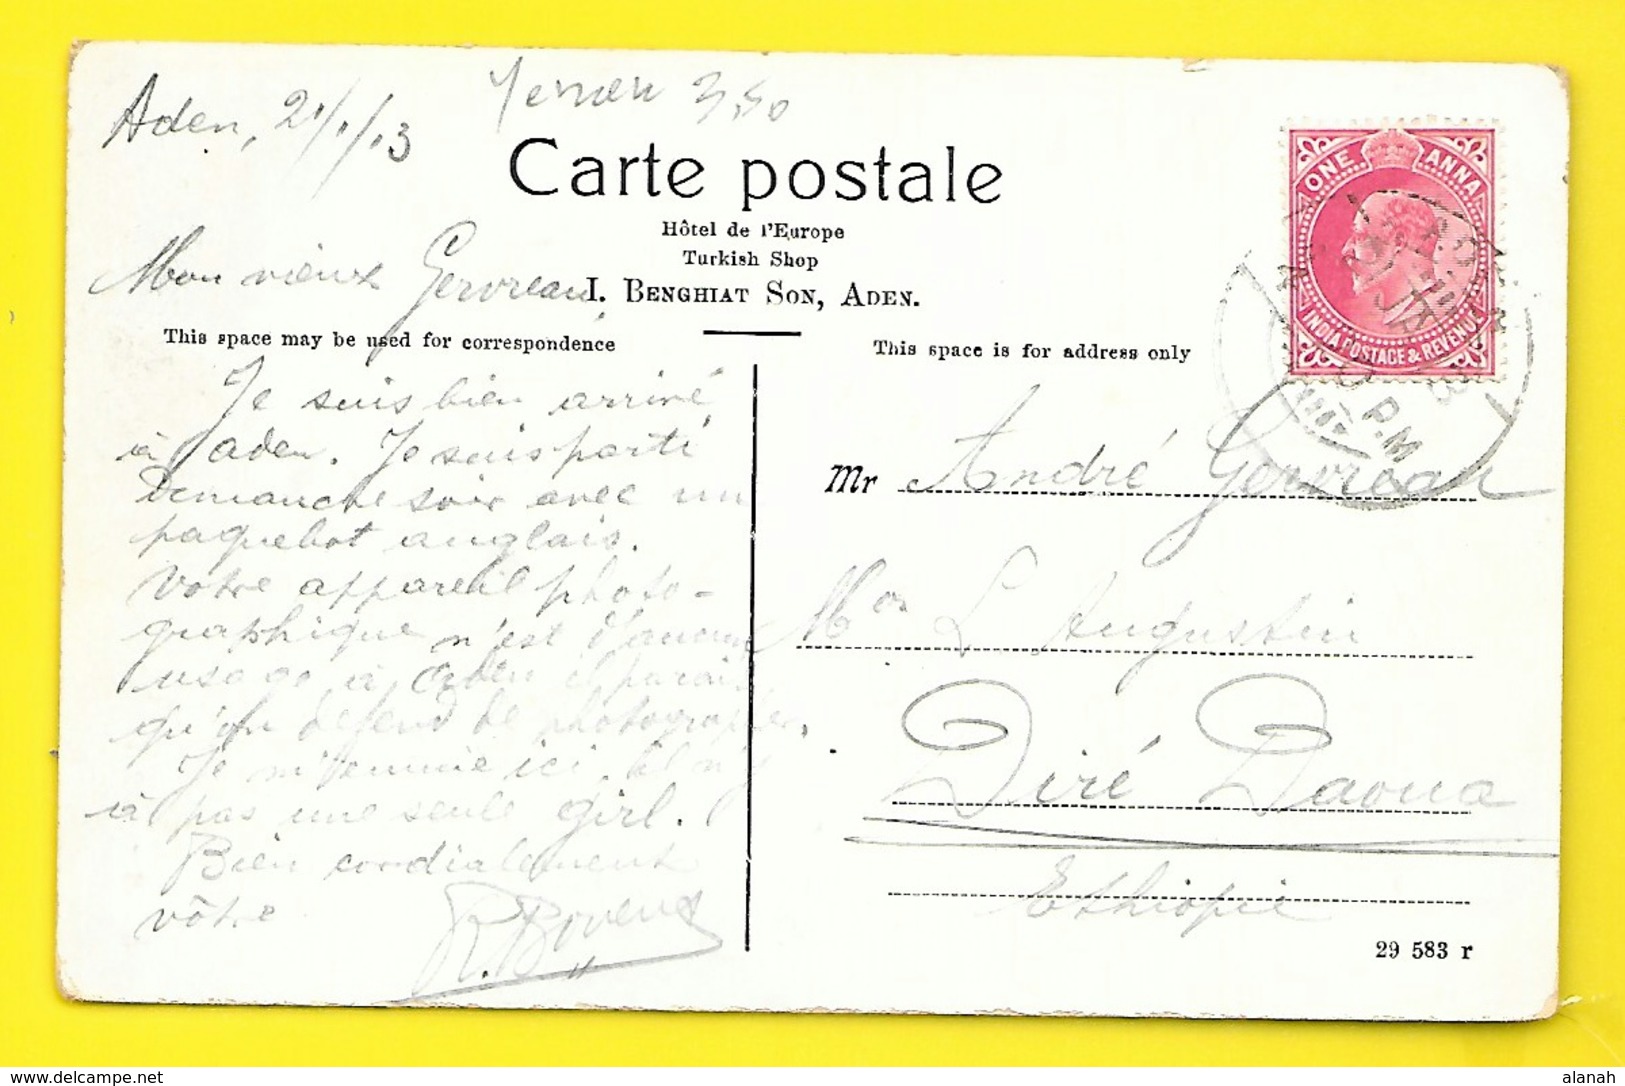 Aden, 21/1/13
Yemen 3,50
Carte postale
Hôtel de l'Europe
Turkish Shop
I. BENGHIAT SON, ADEN.
Mon vieux Gervreau,
This space may be used for correspondence
Je suis bien arrivé
à aden. Je suis parti
Dimanche soir avec un
paquebot anglais.
Votre appareil photo-
graphique n'est d'aucun
usage à Aden il parait
qu'on défend de photographier.
Je m'emmie ici. Il n'y
à pas une seule girl.
Bien cordialement
vôtre
This space is for address only
Mr André Gervreau
Mon L Augustin
Diré Daoua
Ethiopie
29 583 r
ONE ANNA
INDIA POSTAGE & REVENUE
P.M
alanah